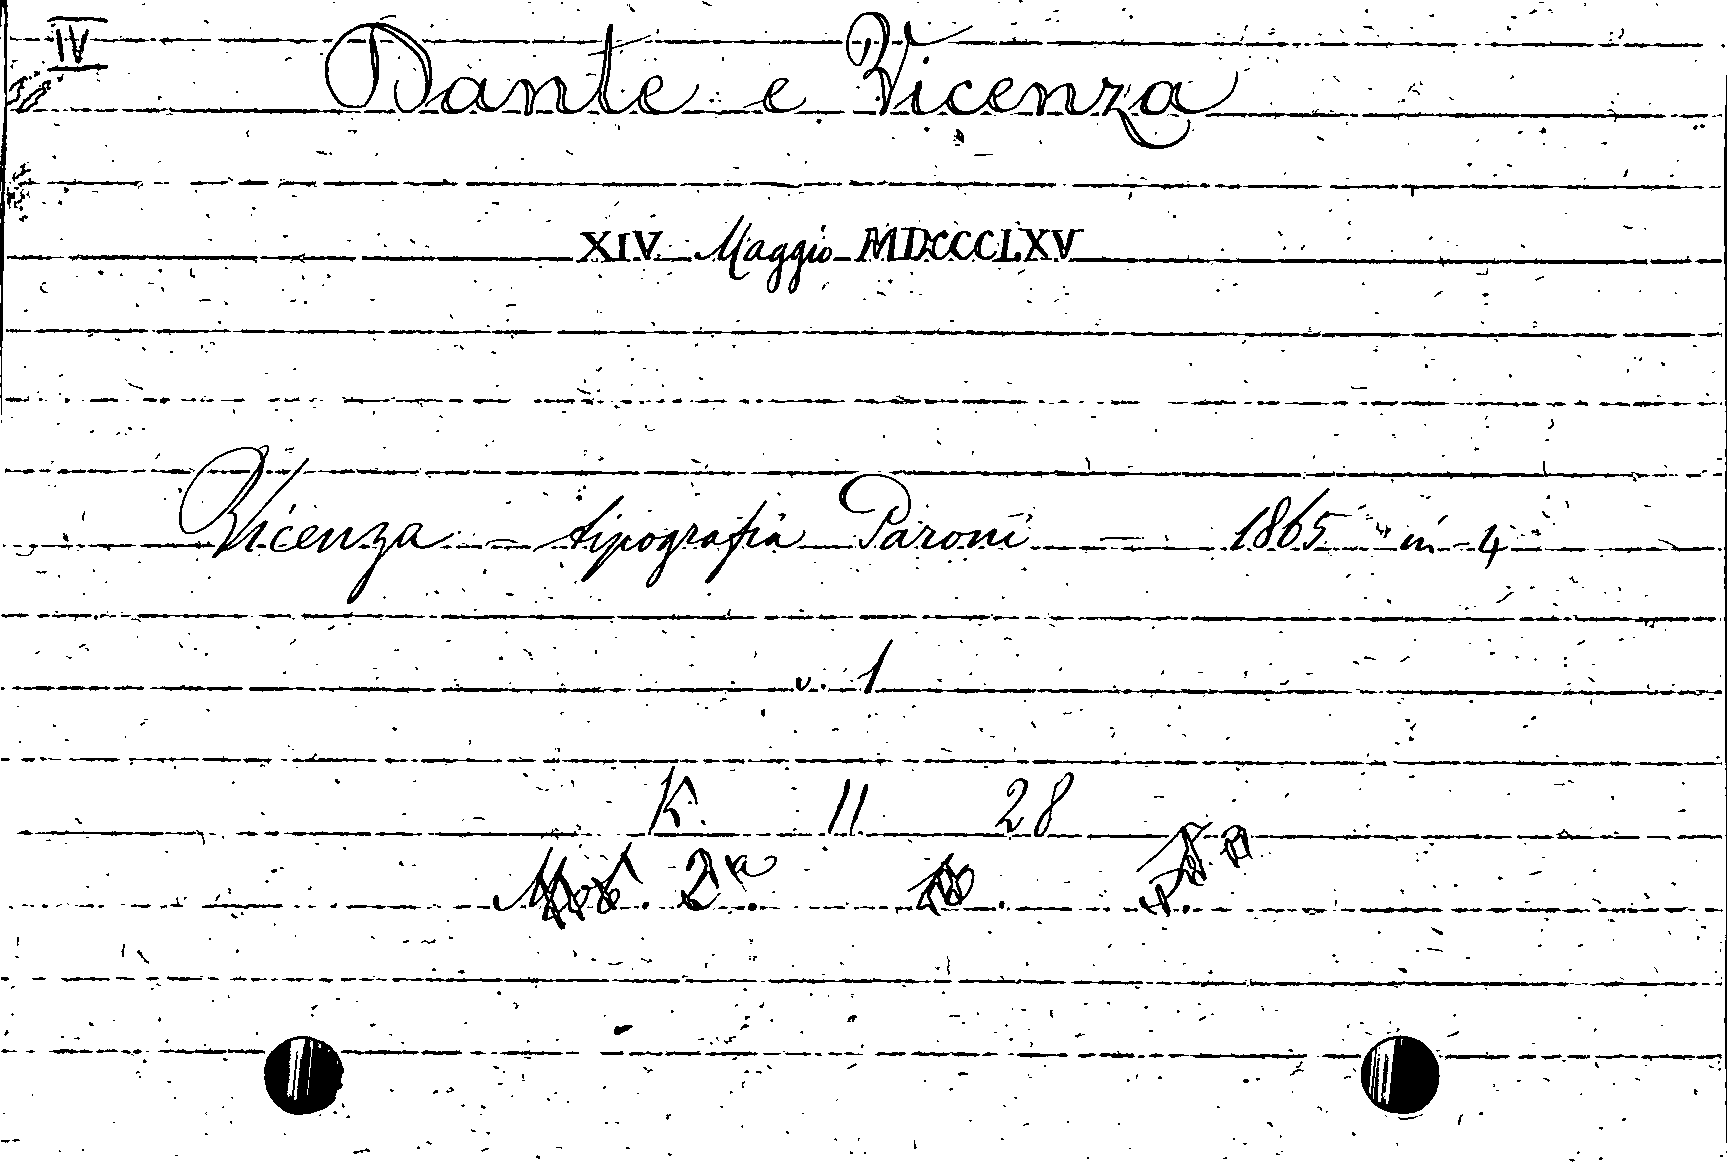 IV
Dante e Vicenza
XIV Maggio MDCCCLXV
Vicenza - tipografia Paroni - 1865 in-4
v. 1
K. 11 28